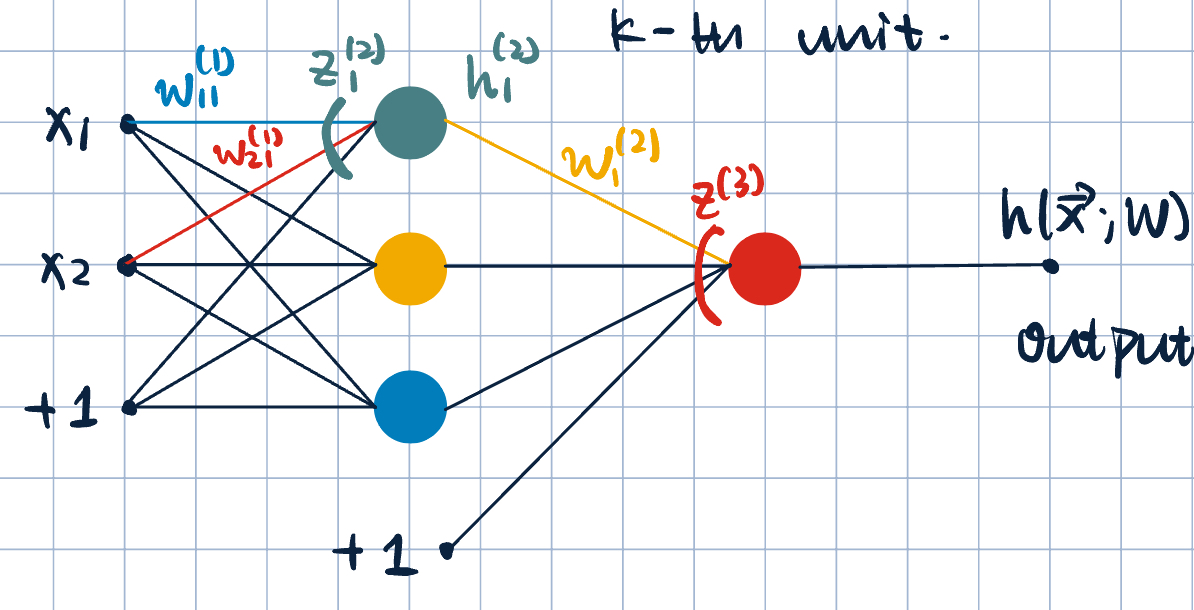 k-th unit.
z₁⁽²⁾
h₁⁽²⁾
w₁₁⁽¹⁾
x₁
w₂₁⁽¹⁾
w₁⁽²⁾
z⁽³⁾
h(x⃗; W)
x₂
output
+1
+1